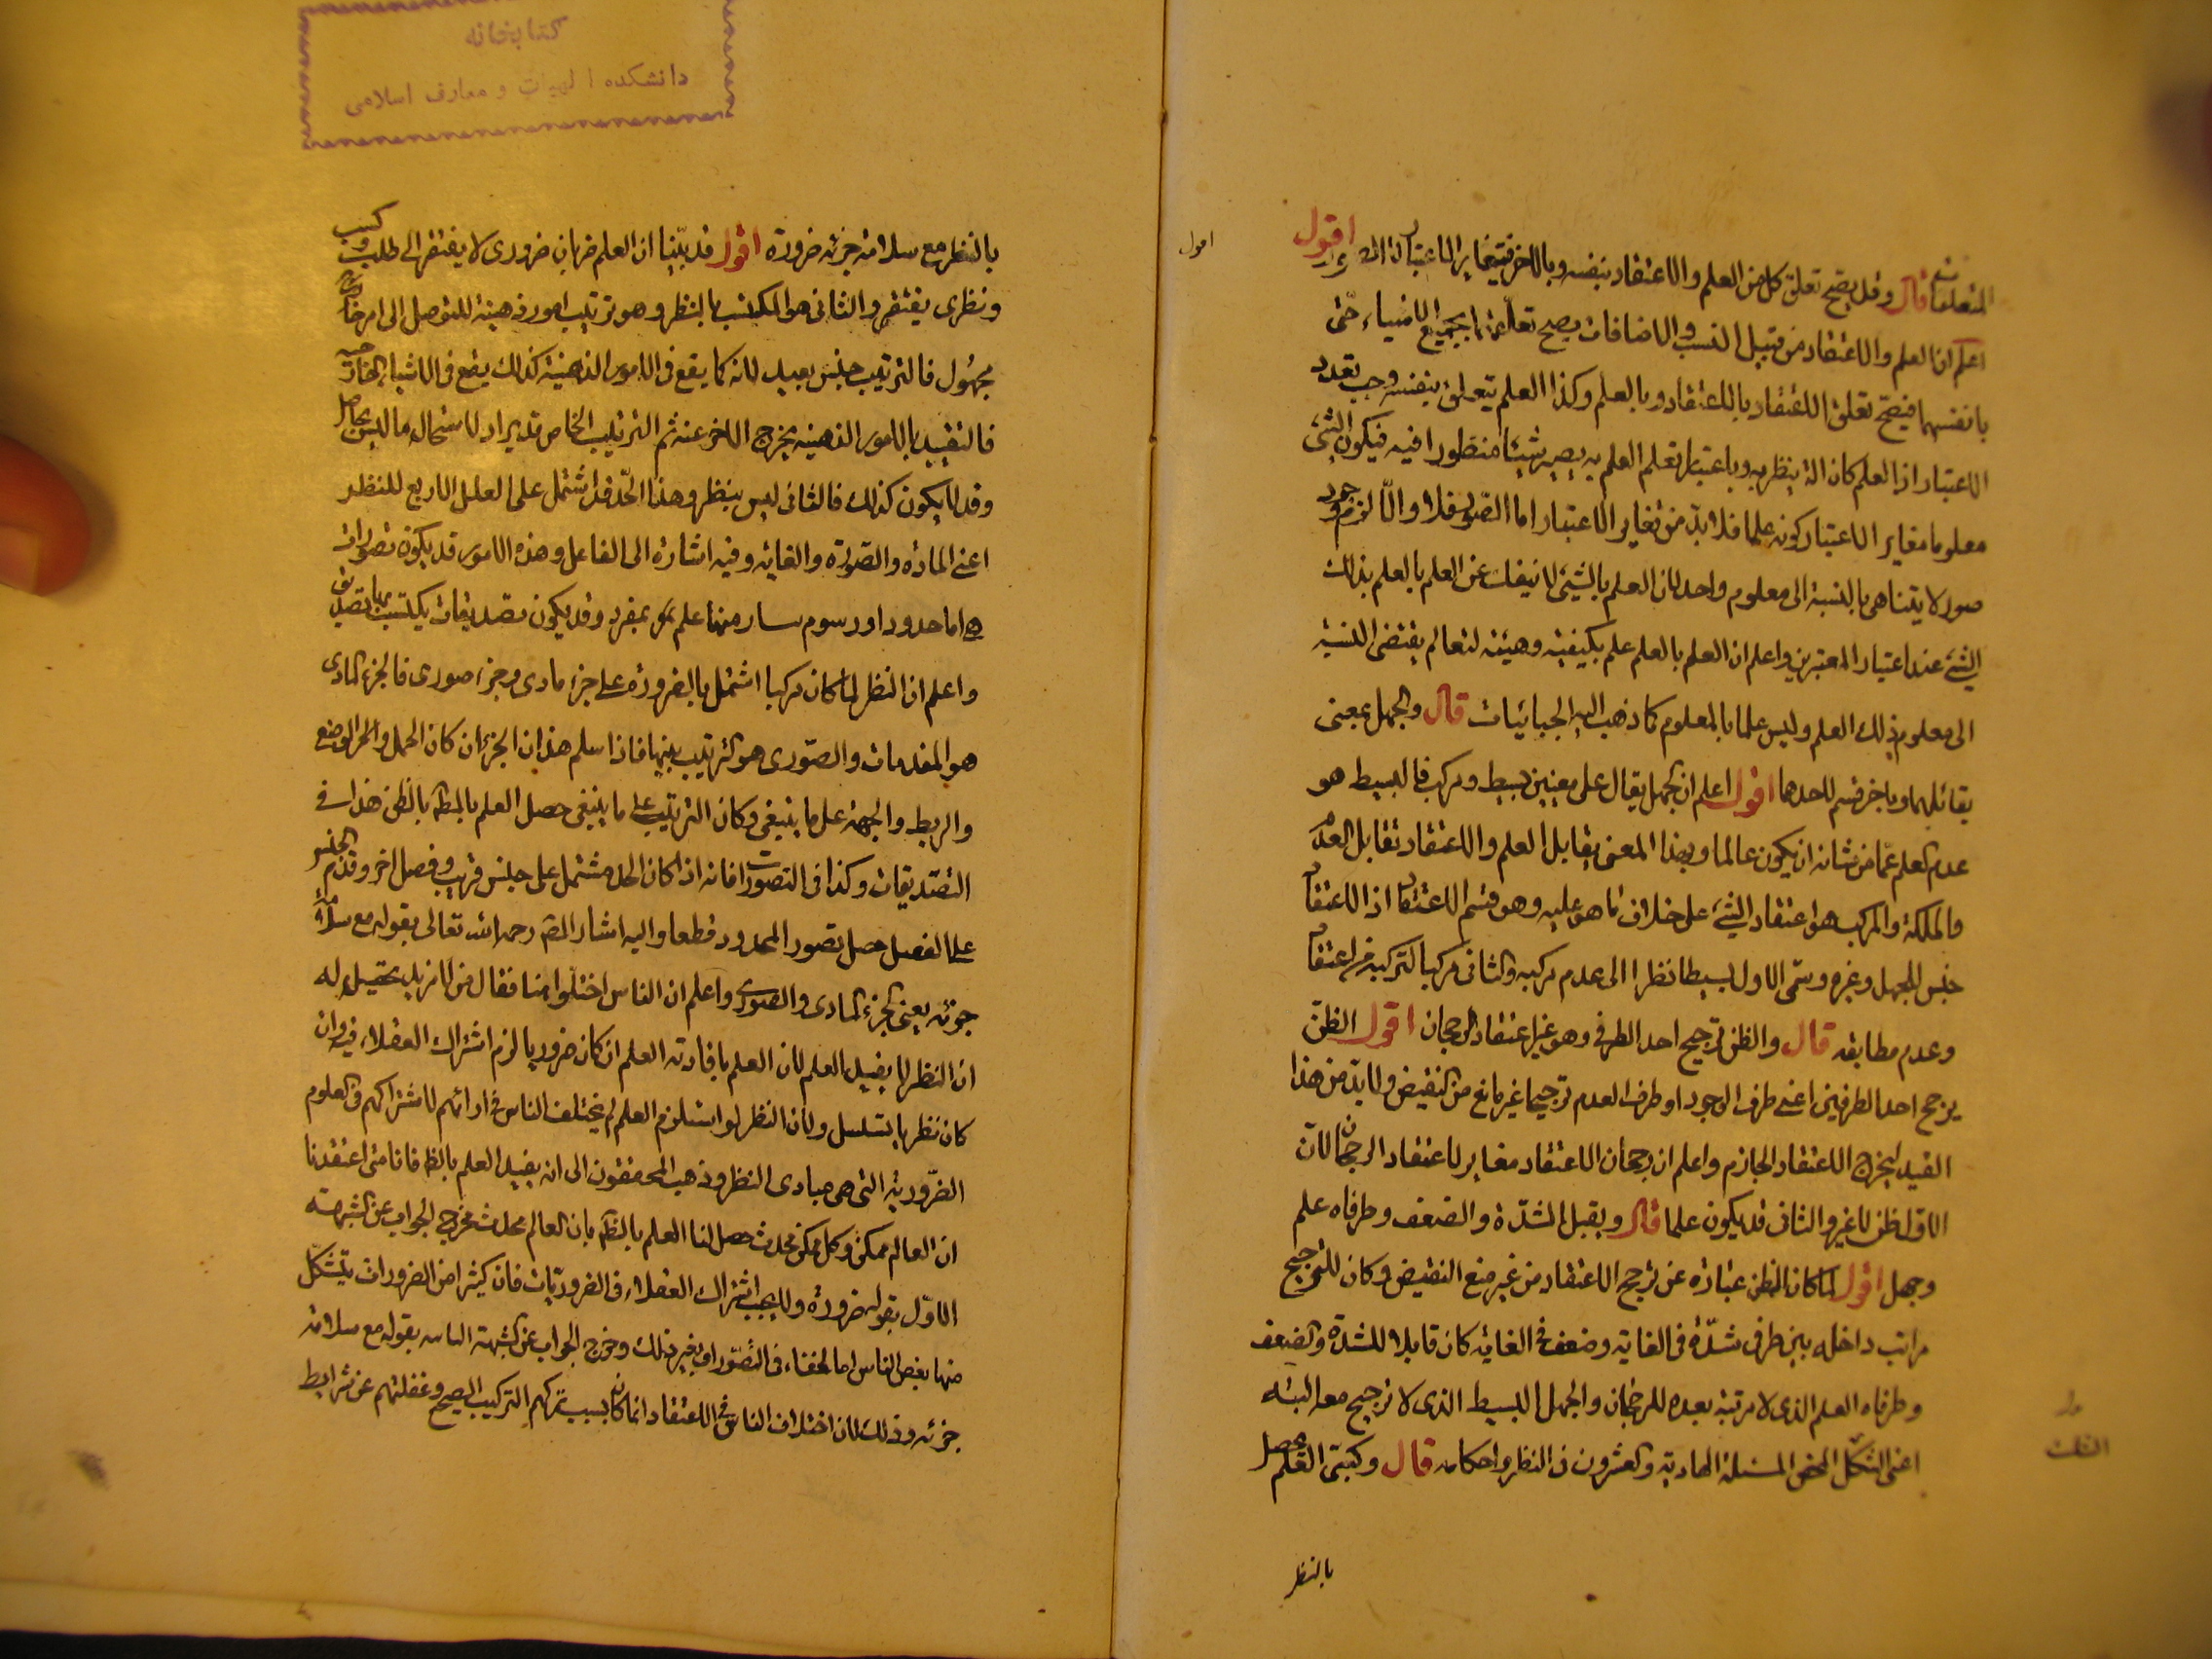 المتعلقات قال وقد يصح تعلق كل من العلم والاعتقاد بنفسه وبالاخر فيتغاير الاعتبار اقول
اعلم ان العلم والاعتقاد من قبيل النسب والاضافات يصح تعلقهما بجميع الاشياء حتى
بانفسهما فيصح تعلق الاعتقاد بالاعتقاد وبالعلم وكذا العلم يتعلق بنفسه وجب تعدد
الاعتبار اذ العلم كان آلة ينظر به وباعتبار تعلم العلم به يصير شيئا منظورا فيه فيكون الشئ
معلوما مغاير الاعتبار كونه علما فلا بد من تغاير الاعتبار اما الصور فلا والا لزم وجود
صور لا يتناهى بالنسبة الى معلوم واحد لان العلم بالشئ لا ينفك عن العلم بالعلم بذلك
الشئ عند اعتبار المعتبرين واعلم ان العلم بالعلم علم بكيفية وهيئة للعالم يقتضى النسبة
الى معلوم ذلك العلم وليس علما بالمعلوم كما ذهب اليه الجبائيان قال والجهل بمعنى
يقابلهما وباخر قسم لاحدهما اقول اعلم ان الجهل يقال على معنيين بسيط ومركب فالبسيط هو
عدم العلم عما من شانه ان يكون عالما وبهذا المعنى يقابل العلم والاعتقاد تقابل العدم
والملكة والمركب هو اعتقاد الشئ على خلاف ما هو عليه وهو قسم الاعتقاد اذ الاعتقاد
جنس للجهل وغيره وسمى الاول بسيطا نظرا الى عدم تركبه والثانى مركبا لتركبه من اعتقاد
وعدم مطابقه قال والظن ترجيح احد الطرفين وهو غير اعتقاد الرجحان اقول الظن
يرجح احد الطرفين اعنى طرف الوجود او طرف العدم ترجيحا غير مانع من النقيض ولا بد من هذا
القيد ليخرج الاعتقاد الجازم واعلم ان رجحان الاعتقاد مغاير لاعتقاد الرجحان لان
الاول ظن لا غير والثانى قد يكون علما قال ويقبل الشدة والضعف وطرفاه علم
وجهل اقول لما كان الظن عبارة عن ترجح الاعتقاد من غير منع النقيض وكان للترجيح
مراتب داخله بين طرفى شدة فى الغاية وضعف فى الغاية كان قابلا للشدة والضعف
وطرفاه العلم الذى لا مرتبة بعده للرجحان والجهل البسيط الذى لا ترجيح معه البتة
اعنى الشك المحض المسئلة الحادية والعشرون فى النظر واحكامه قال وكسبى العلم يحصل
بالنظر
اقول
كتابخانه
دانشكده الهيات و معارف اسلامى
بالنظر مع سلامة جزئيه ضرورة اقول قد بينا ان العلم ضربان ضرورى لا يفتقر الى طلب وكسب
ونظرى يفتقر والثانى هو المكتسب بالنظر وهو ترتيب امور ذهنية للتوصل الى امر
مجهول فالترتيب جنس بعيد لانه كما يقع فى الامور الذهنية كذلك يقع فى الاشياء الخارجية
فالتقييد بالامور الذهنية يخرج الاخر عنه ثم الترتيب الخاص قد يراد لاستحصال ما ليس بحاصل
وقد لا يكون كذلك فالثانى ليس بنظر وهذا الحد قد اشتمل على العلل الاربع للنظر
اعنى المادة والصورة والغاية وفيه اشارة الى الفاعل وهذه الامور قد يكون تصورات
هى اما حدود او رسوم علم بمفرد وقد يكون تصديقات يكتسب بها تصديق
واعلم ان النظر لما كان مركبا اشتمل بالضرورة على جزء مادى وجزء صورى فالجزء المادى
هو المقدمات والصورى هو الترتيب بينها فاذا سلم هذان الجزءان كان الحمل والوضع
والربط والجهة على ما ينبغى وكان الترتيب على ما ينبغى حصل العلم بالمط بالنظر هذا فى
التصديقات وكذا فى التصورات فانه اذا كان الحد مشتمل على جنس قريب وفصل اخر وقدم الجنس
على الفصل حصل تصور المحدود قطعا واليه اشار المص رحمه الله تعالى بقوله مع سلامة
جزئه يعنى الجزء المادى والصورى واعلم ان الناس اختلفوا هنا فقال من لا مزيد تحصيل له
ان النظر لا يفيد العلم لان العلم بافادته العلم ان كان ضروريا لزم اشتراك العقلاء فيه وان
كان نظريا تسلسل ولان النظر لو استلزم العلم لم يختلف الناس فى ارائهم لاشتراكهم فى العلوم
الضرورية التى هى مبادى النظر وذهب المحققون الى انه يفيد العلم بالمط فانا متى اعتقدنا
ان العالم ممكن وكل ممكن محدث حصل لنا العلم بالمط بان العالم محدث فخرج الجواب عن الشبهة
الاولى بقوله ضرورة ولا يجب اشتراك العقلاء فى الضروريات فان كثيرا من الضروريات يتشكك
منها بعض الناس اما لخفاء فى التصورات او غير ذلك وخرج الجواب عن الشبهة الثانيه بقوله مع سلامة
جزئه وذلك لان اختلاف الناس فى الاعتقاد انما كان بسبب تركهم التركيب الصحيح وغفلتهم عن شرايط